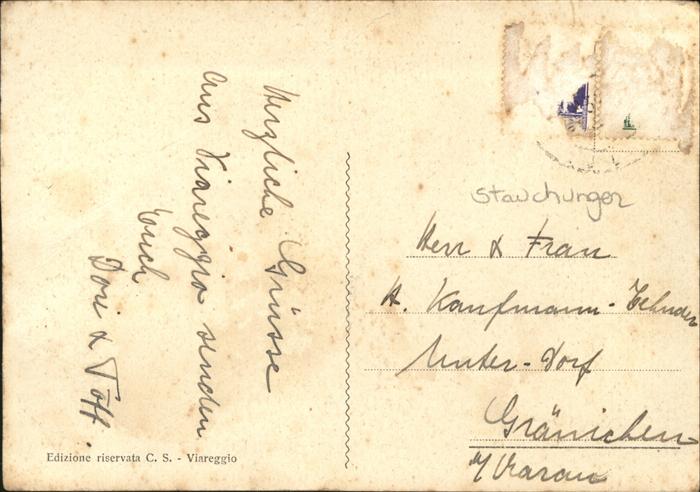 Herzliche Grüsse
aus Viareggio senden
Euch
Dori & Töff.
Edizione riservata C. S. - Viareggio
Stauchungen
Herr & Frau
H. Kaufmann-Zehnder
Unter-Dorf
Gränichen
b/Aarau